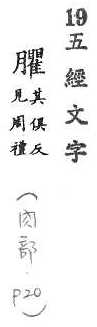 19五經文字
臞其俱反
見周禮
(肉部．
p20)